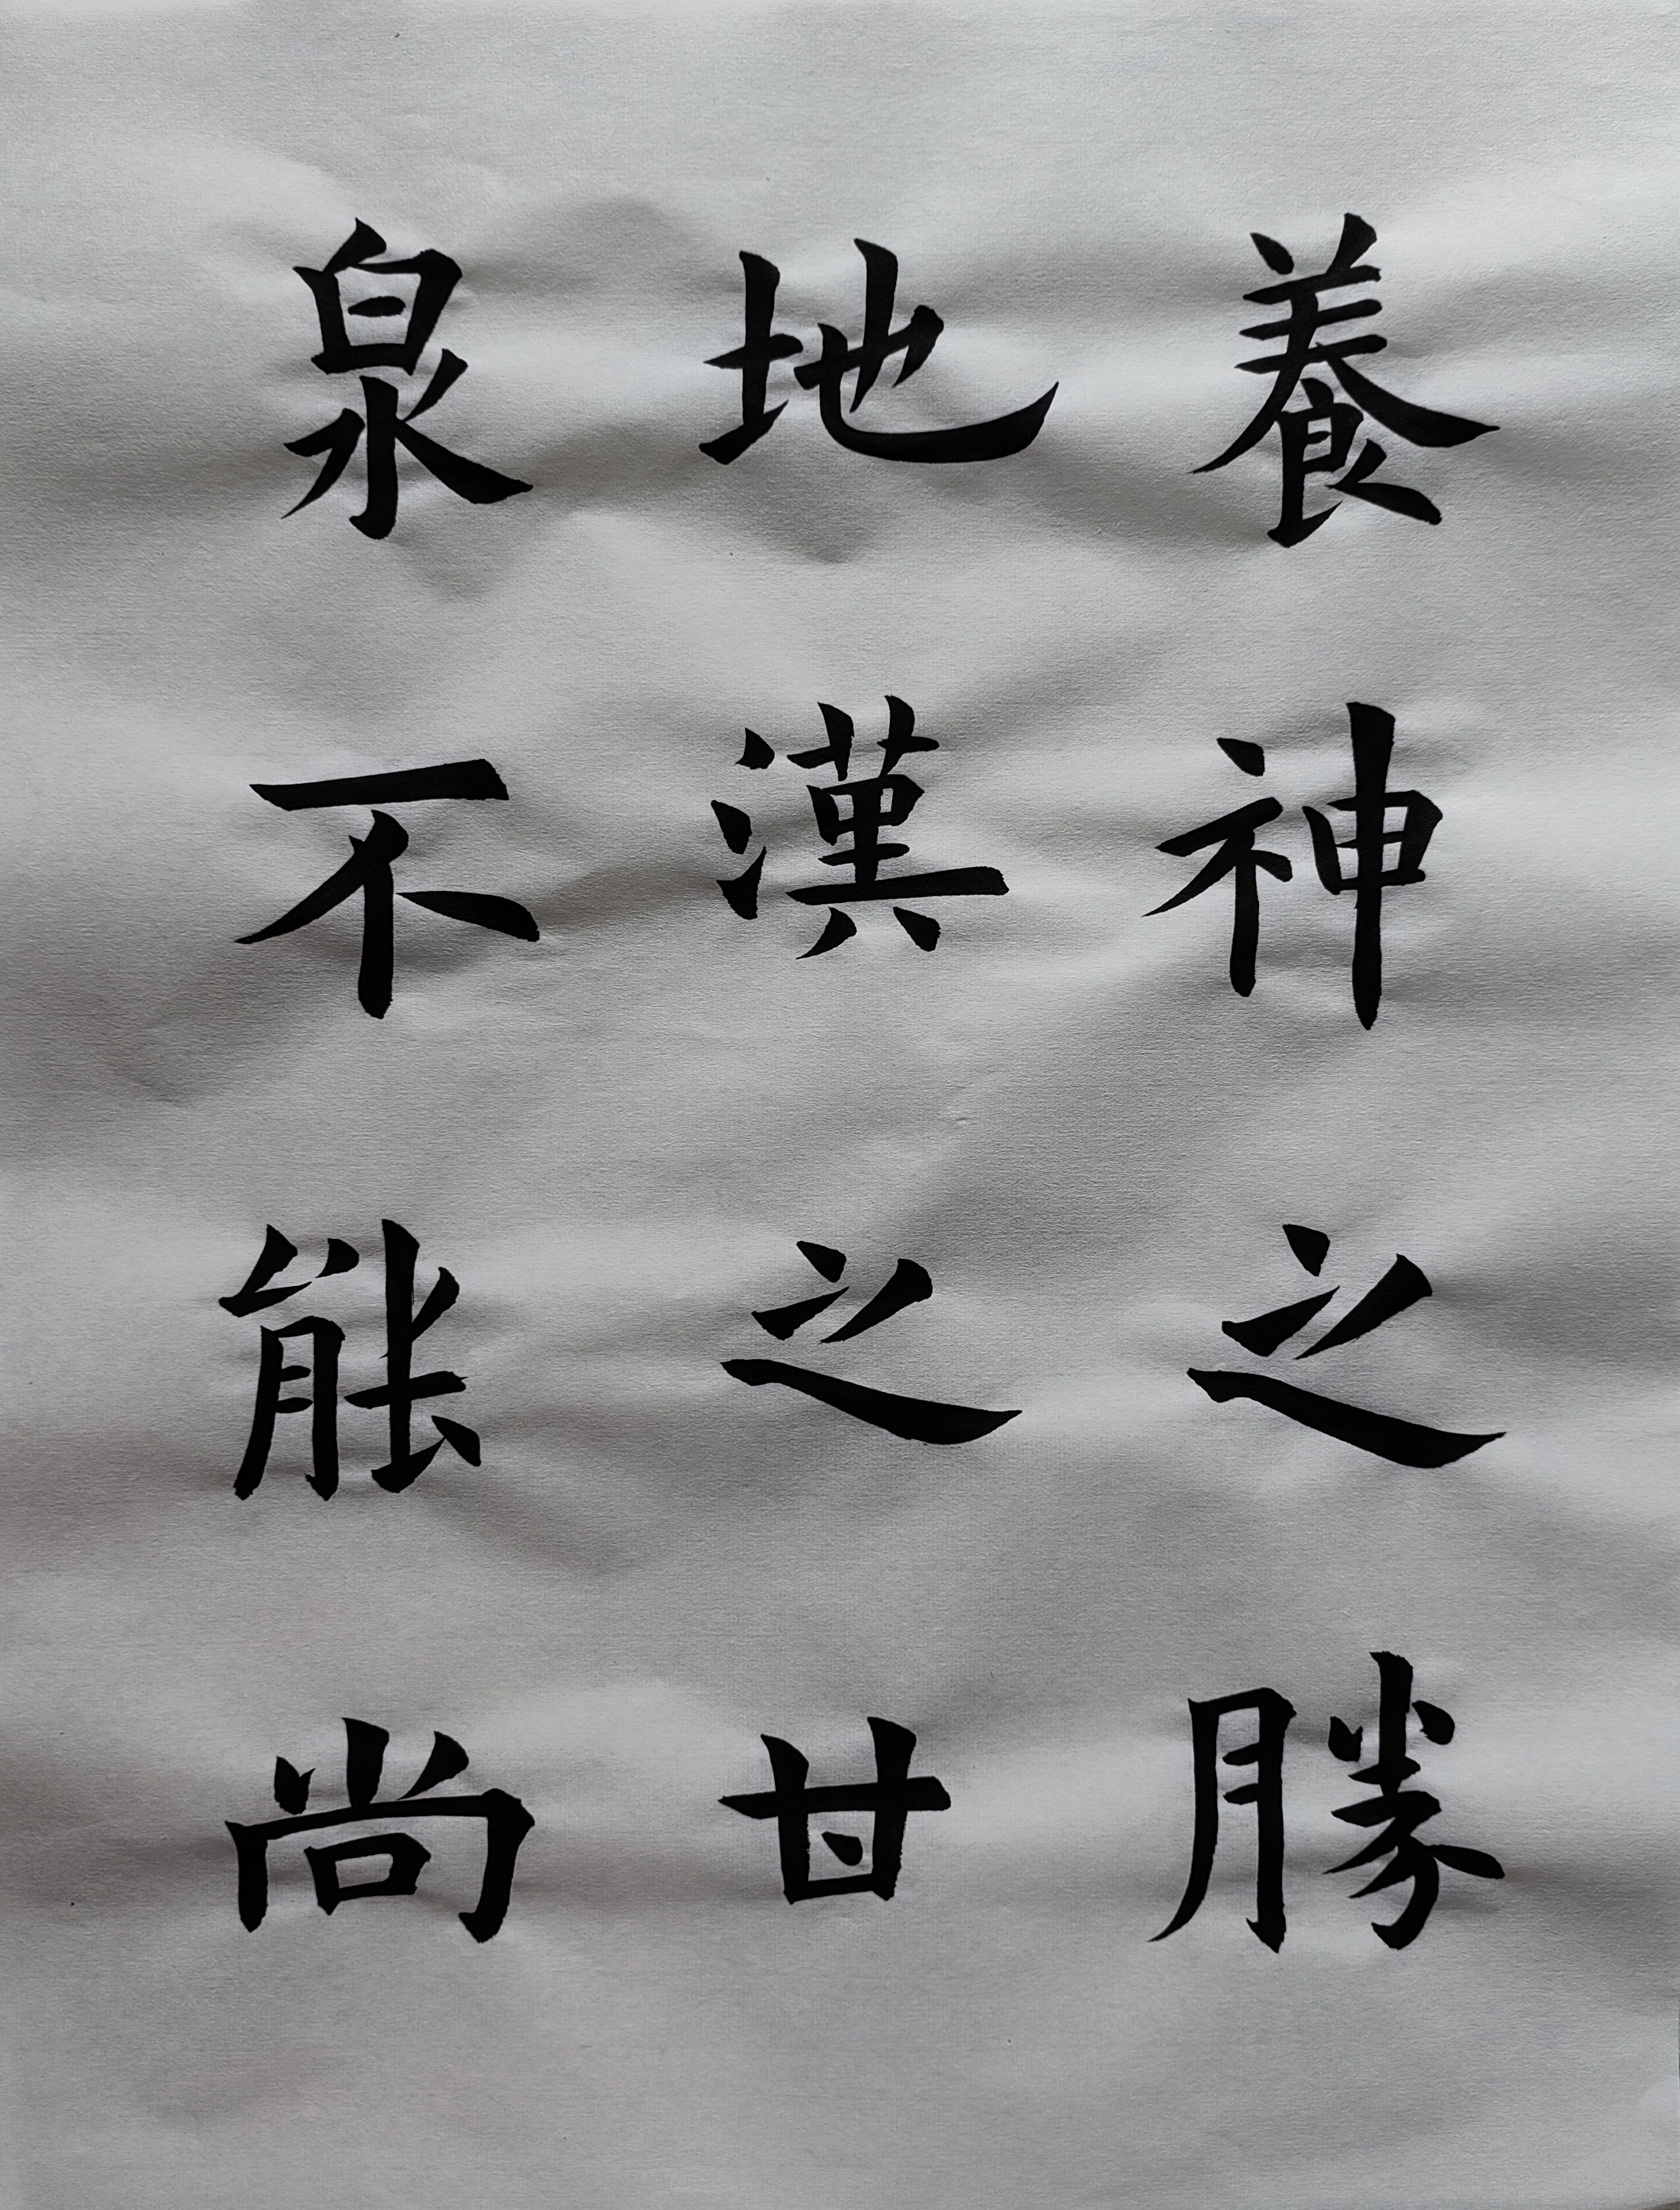 養神之勝
地漢之甘
泉不能尚